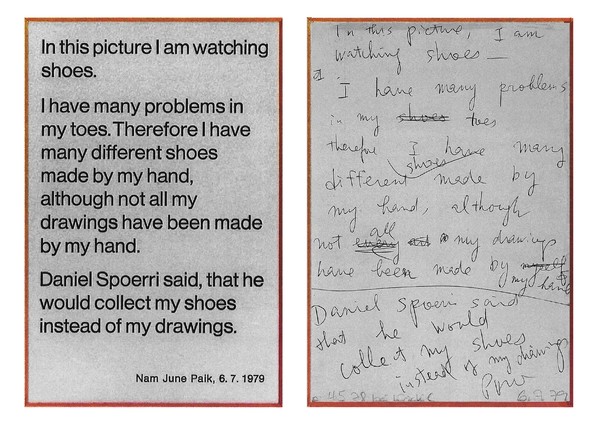 In this picture I am watching
shoes.
I have many problems in
my toes. Therefore I have
many different shoes
made by my hand,
although not all my
drawings have been made
by my hand.
Daniel Spoerri said, that he
would collect my shoes
instead of my drawings.
Nam June Paik, 6. 7. 1979
In this picture, I am
watching shoes —
I have many problems
in my shoes toes
therefore I have many
shoes
different made by
my hand, although
all
not my drawings
have been made by myself
my hand
Daniel Spoerri said
that he would
collect my shoes
instead of my drawings